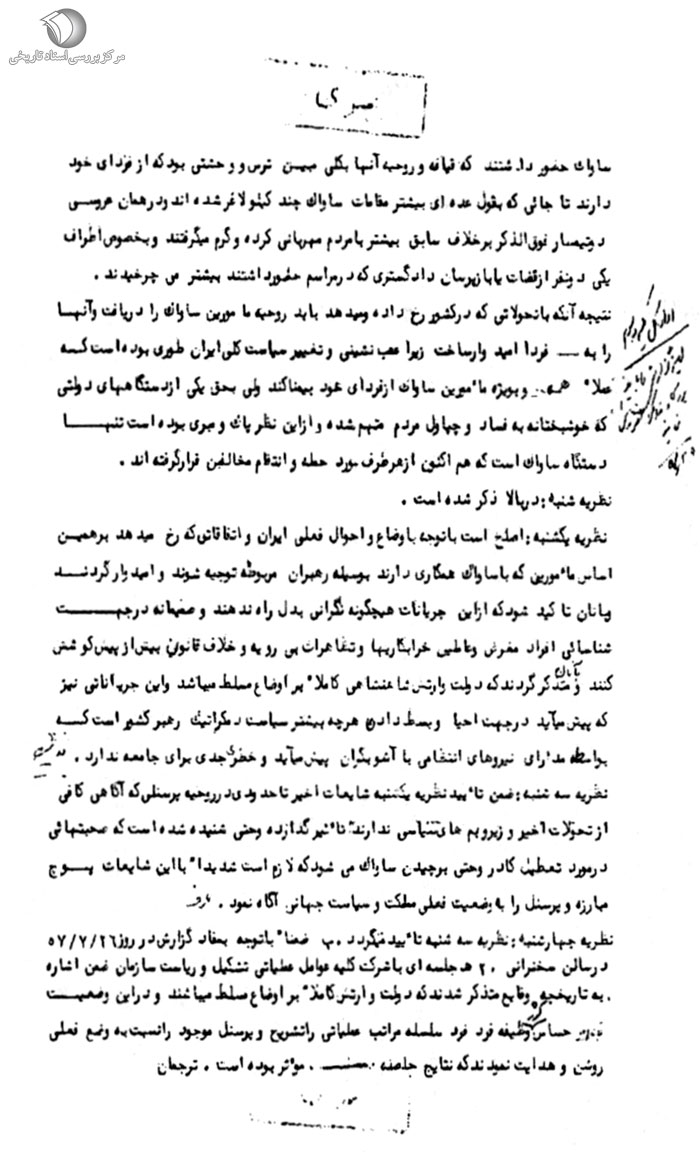 مرکز بررسی اسناد تاریخی
ساواك حضور داشتند که قیافه و روحیه آنها بکلی مبین ترس و وحشتی بود که از فردای خود
دارند تا جائی که بقول عده ای بیشتر مقامات ساواك چند کیلو لاغر شده اند و در همان عروسی
دو تیمسار فوق الذکر بر خلاف سابق بیشتر با مردم مهربانی کرده و گرم میگرفتند و بخصوص اطراف
یکی دو نفر از قضات یا بازپرسان دادگستری که در مراسم حضور داشتند بیشتر می چرخیدند .
نتیجه آنکه با تحولاتی که در کشور رخ داده و میدهد باید روحیه مامورین ساواك را دریافت و آنها
را به فردا امید وار ساخت زیرا عقب نشینی و تغییر سیاست کلی ایران طوری بوده است که
عملا" همه و بویژه مامورین ساواك از فردای خود بیمناکند ولی بحق یکی از دستگاههای دولتی
که خوشبختانه به فساد و چپاول مردم متهم نشده و از این نظر پاك و مبری بوده است تنها
دستگاه ساواك است که هم اکنون از هر طرف مورد حمله و انتقام مخالفین قرار گرفته اند .
نظریه شنبه : در بالا ذکر شده است .
نظریه یکشنبه : اصلح است با توجه با وضاع و احوال فعلی ایران و اتفاقاتی که رخ میدهد بر همین
اساس مامورین که با ساواك همکاری دارند بوسیله رهبران مربوطه توجیه شوند و امید وار گردند
و بانان تاکید شود که از این جریانات هیچگونه نگرانی بدل راه ندهند و صمیمانه در جهت
شناسائی افراد مغرض و عاملین خرابکاریها و تظاهرات بی رویه و خلاف قانون بیش از پیش کوشش
کنند و بآنان متذکر گردند که دولت و ارتش شاهنشاهی کاملا" بر اوضاع مسلط میباشد و این جریاناتی نیز
که پیش میآید در جهت احیا و بسط دادن هر چه بیشتر سیاست دمکراتیك رهبر کشور است که
بواسطه مدارای نیروهای انتظامی با آشوبگران پیش میآید و خطر جدی برای جامعه ندارد .
نظریه سه شنبه : ضمن تائید نظریه یکشنبه شایعات اخیر تا حدودی در روحیه پرسنلی که آگاهی کافی
از تحولات اخیر و زیر و بم های سیاسی ندارند تاثیر گذارده و حتی شنیده شده است که صحبتهائی
در مورد تعطیل کادر و حتی برچیدن ساواك می شود که لازم است شدیدا" با این شایعات پوچ
مبارزه و پرسنل را به وضعیت فعلی مملکت و سیاست جهانی آگاه نمود .
نظریه چهارشنبه : نظریه سه شنبه تائید میگردد . ضمنا" با توجه بمفاد گزارش در روز ۵۷/۷/۲۶
در سالن سخنرانی ۲۰ ه جلسه ای با شرکت کلیه عوامل عملیاتی تشکیل و ریاست سازمان ضمن اشاره
به تاریخچه وقایع متذکر شدند که دولت و ارتش کاملا" بر اوضاع مسلط میباشند و در این وضعیت
حساس وظیفه فرد فرد سلسله مراتب عملیاتی را تشریح و پرسنل موجود را نسبت به وضع فعلی
روشن و هدایت نمودند که نتایج حاصله موثر بوده است . ترجمان